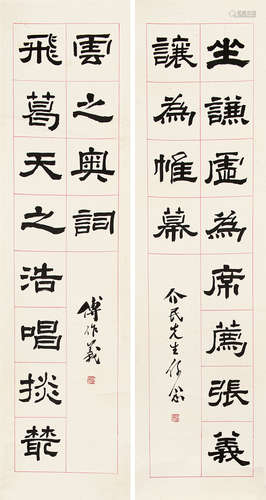 坐謙虛為席薦張義
讓為帷幕
介民先生存念
飛葛天之浩唱掞藂
雲之奧詞
傅作義